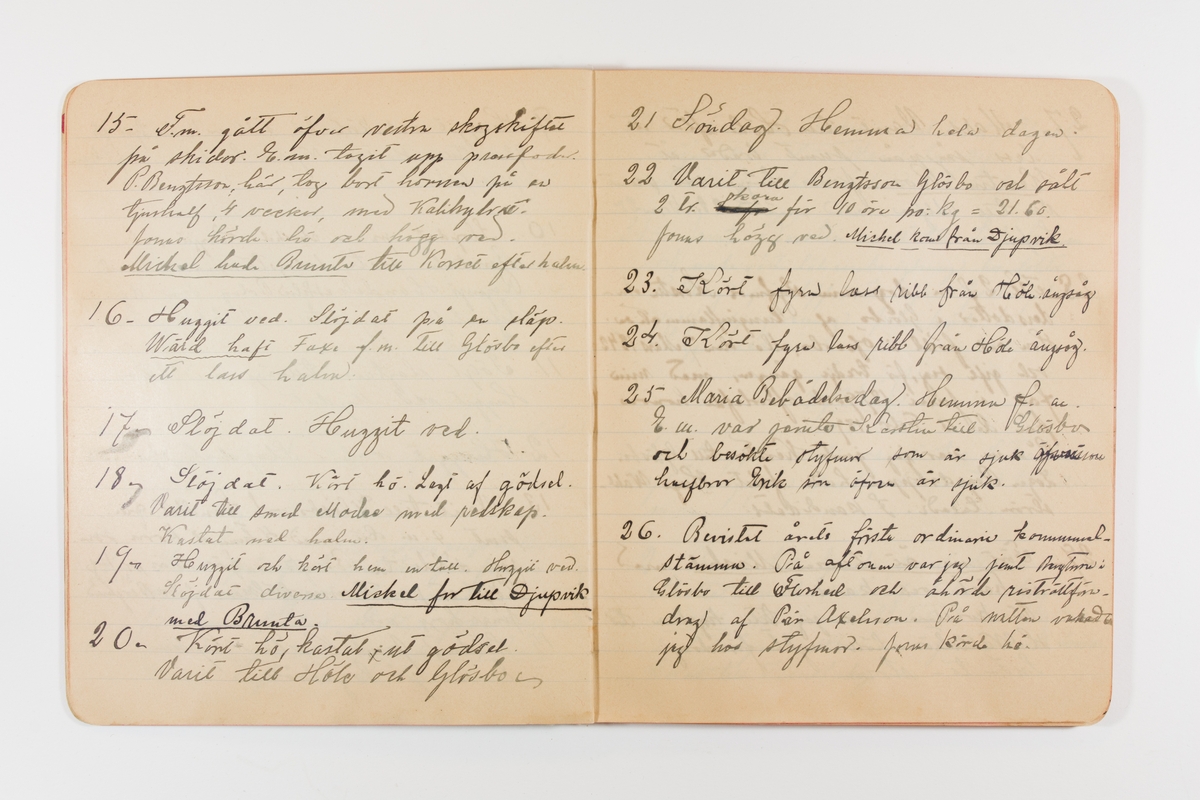 15- F.m. gått öfver vestra skogskiftet
på skidor. E.m. tagit upp pressfoder.
P. Bengtsson, här, tog bort hornen på en
tjurkalf, 4 veckor, med Kalihydrat.
Jonas körde hö och högg ved.
Mickel hade Brunta till Korset efter halm.
16- Huggit ved. Slöjdat på en släp.
Wård haft Faxe f.m. till Glösbo efter
ett lass halm.
17- Slöjdat. Huggit ved.
18- Slöjdat. Kört hö. Legt af gödsel.
Varit till smed Modee med redskap.
Kastat ned halm.
19- Huggit och kört hem en tall. Huggit ved.
Slöjdat diverse Mickel for till Djupvik
med Brunta.
20- Kört hö, kastat ut gödsel.
Varit till Höle och Glösbo
21 Söndag. Hemma hela dagen.
22 Varit till Bengtsson Glösbo och sålt
2 tr. för 10 öre pr: kg = 21.60.
Jonas högg ved. Mickel kom från Djupvik.
23. Kört fyra lass ribb från Höle ångsåg
24. Kört fyra lass ribb från Höle ångsåg.
25 Maria Bebådelsedag. Hemma f. m.
E. m. var jemte Kerstin till Glösbo
och besökte styfmor som är sjuk
halfbror Erik som äfven är sjuk.
26. Bevistat årets första ordinarie kommunal-
stämma. På aftonen var jag jemt Bengtsson i
Glösbo till Florhed och åhörde
drag af Pär Axelsson. På natten vakade
jag hos styfmor. Jonas körde hö.